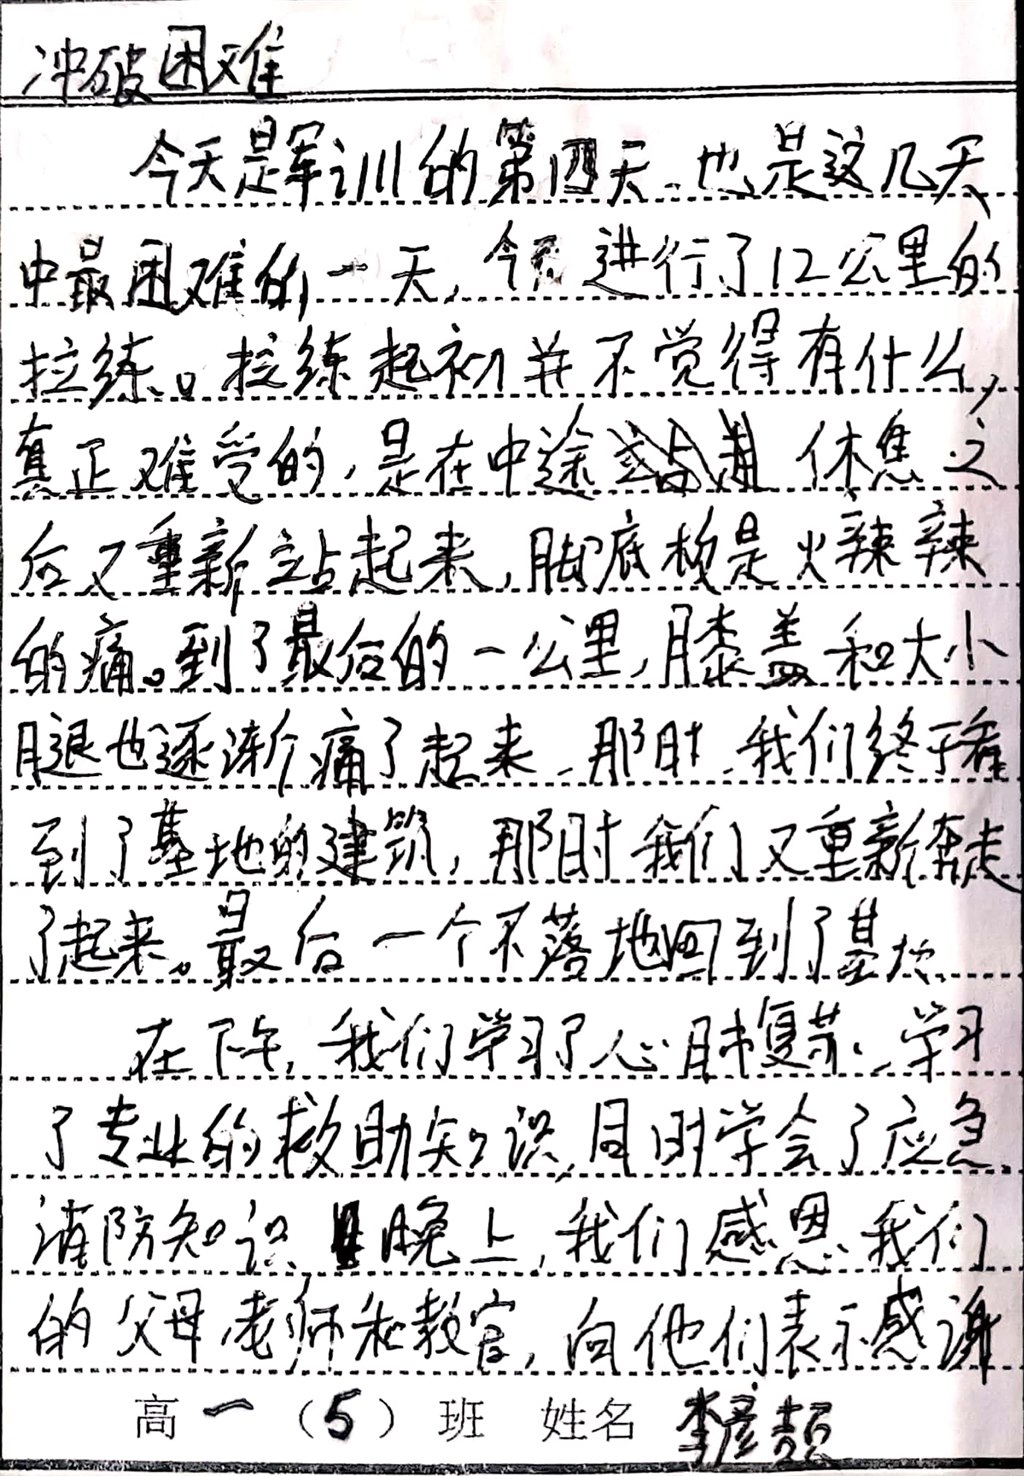 冲破困难
今天是军训的第四天、也是这几天
中最困难的一天,今天进行了12公里的
拉练。拉练起初并不觉得有什么,
真正难受的,是在中途休息之
后又重新站起来,脚底板是火辣辣
的痛。到了最后的一公里,膝盖和大小
腿也逐渐痛了起来、那时、我们终于看
到了基地的建筑,那时我们又重新奔走
了起来。最后一个不落地回到了基地、
在下午,我们学习了心肺复苏、学习
了专业的救助知识,同时学会了应急
消防知识、晚上,我们感恩我们
的父母老师和教官,向他们表示感谢
高一(5)班 姓名 李彦